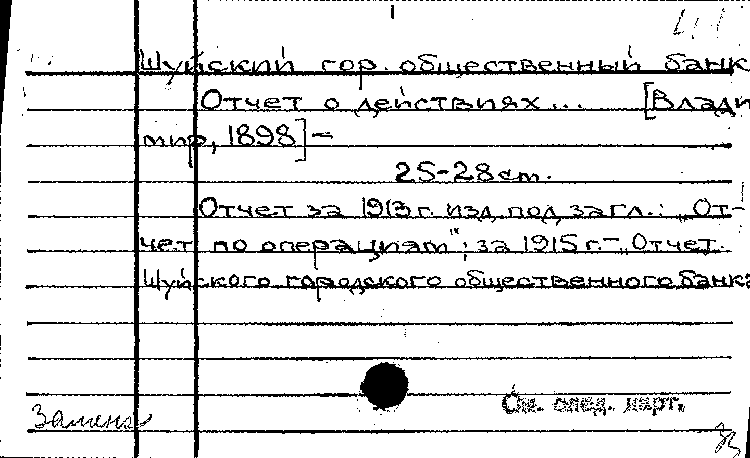 Шуйский гор. общественный банк
Отчет о действиях... [Влади
мир, 1898] —
25-28 cm.
Отчет за 1913 г. изд. под загл.: „От-
чет по операциям"; за 1915 г.-„Отчет
Шуйского городского общественного банка
См. след. карт.
Замена